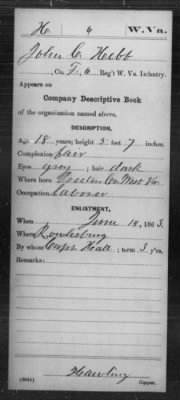 H 6 W. Va.
John C. Hebb
Co. F, 6 Reg't W. Va. Infantry.
Appears on
Company Descriptive Book
of the organization named above.
DESCRIPTION.
Age 18 years; height 5 feet 7 inches.
Complexion fair
Eyes grey; hair dark
Where born Preston Co. West Va.
Occupation laborer
ENLISTMENT.
When June 18, 1863.
Where Rowlesburg
By whom Capt Heall; term 3 y'rs.
Remarks:
Copyist.